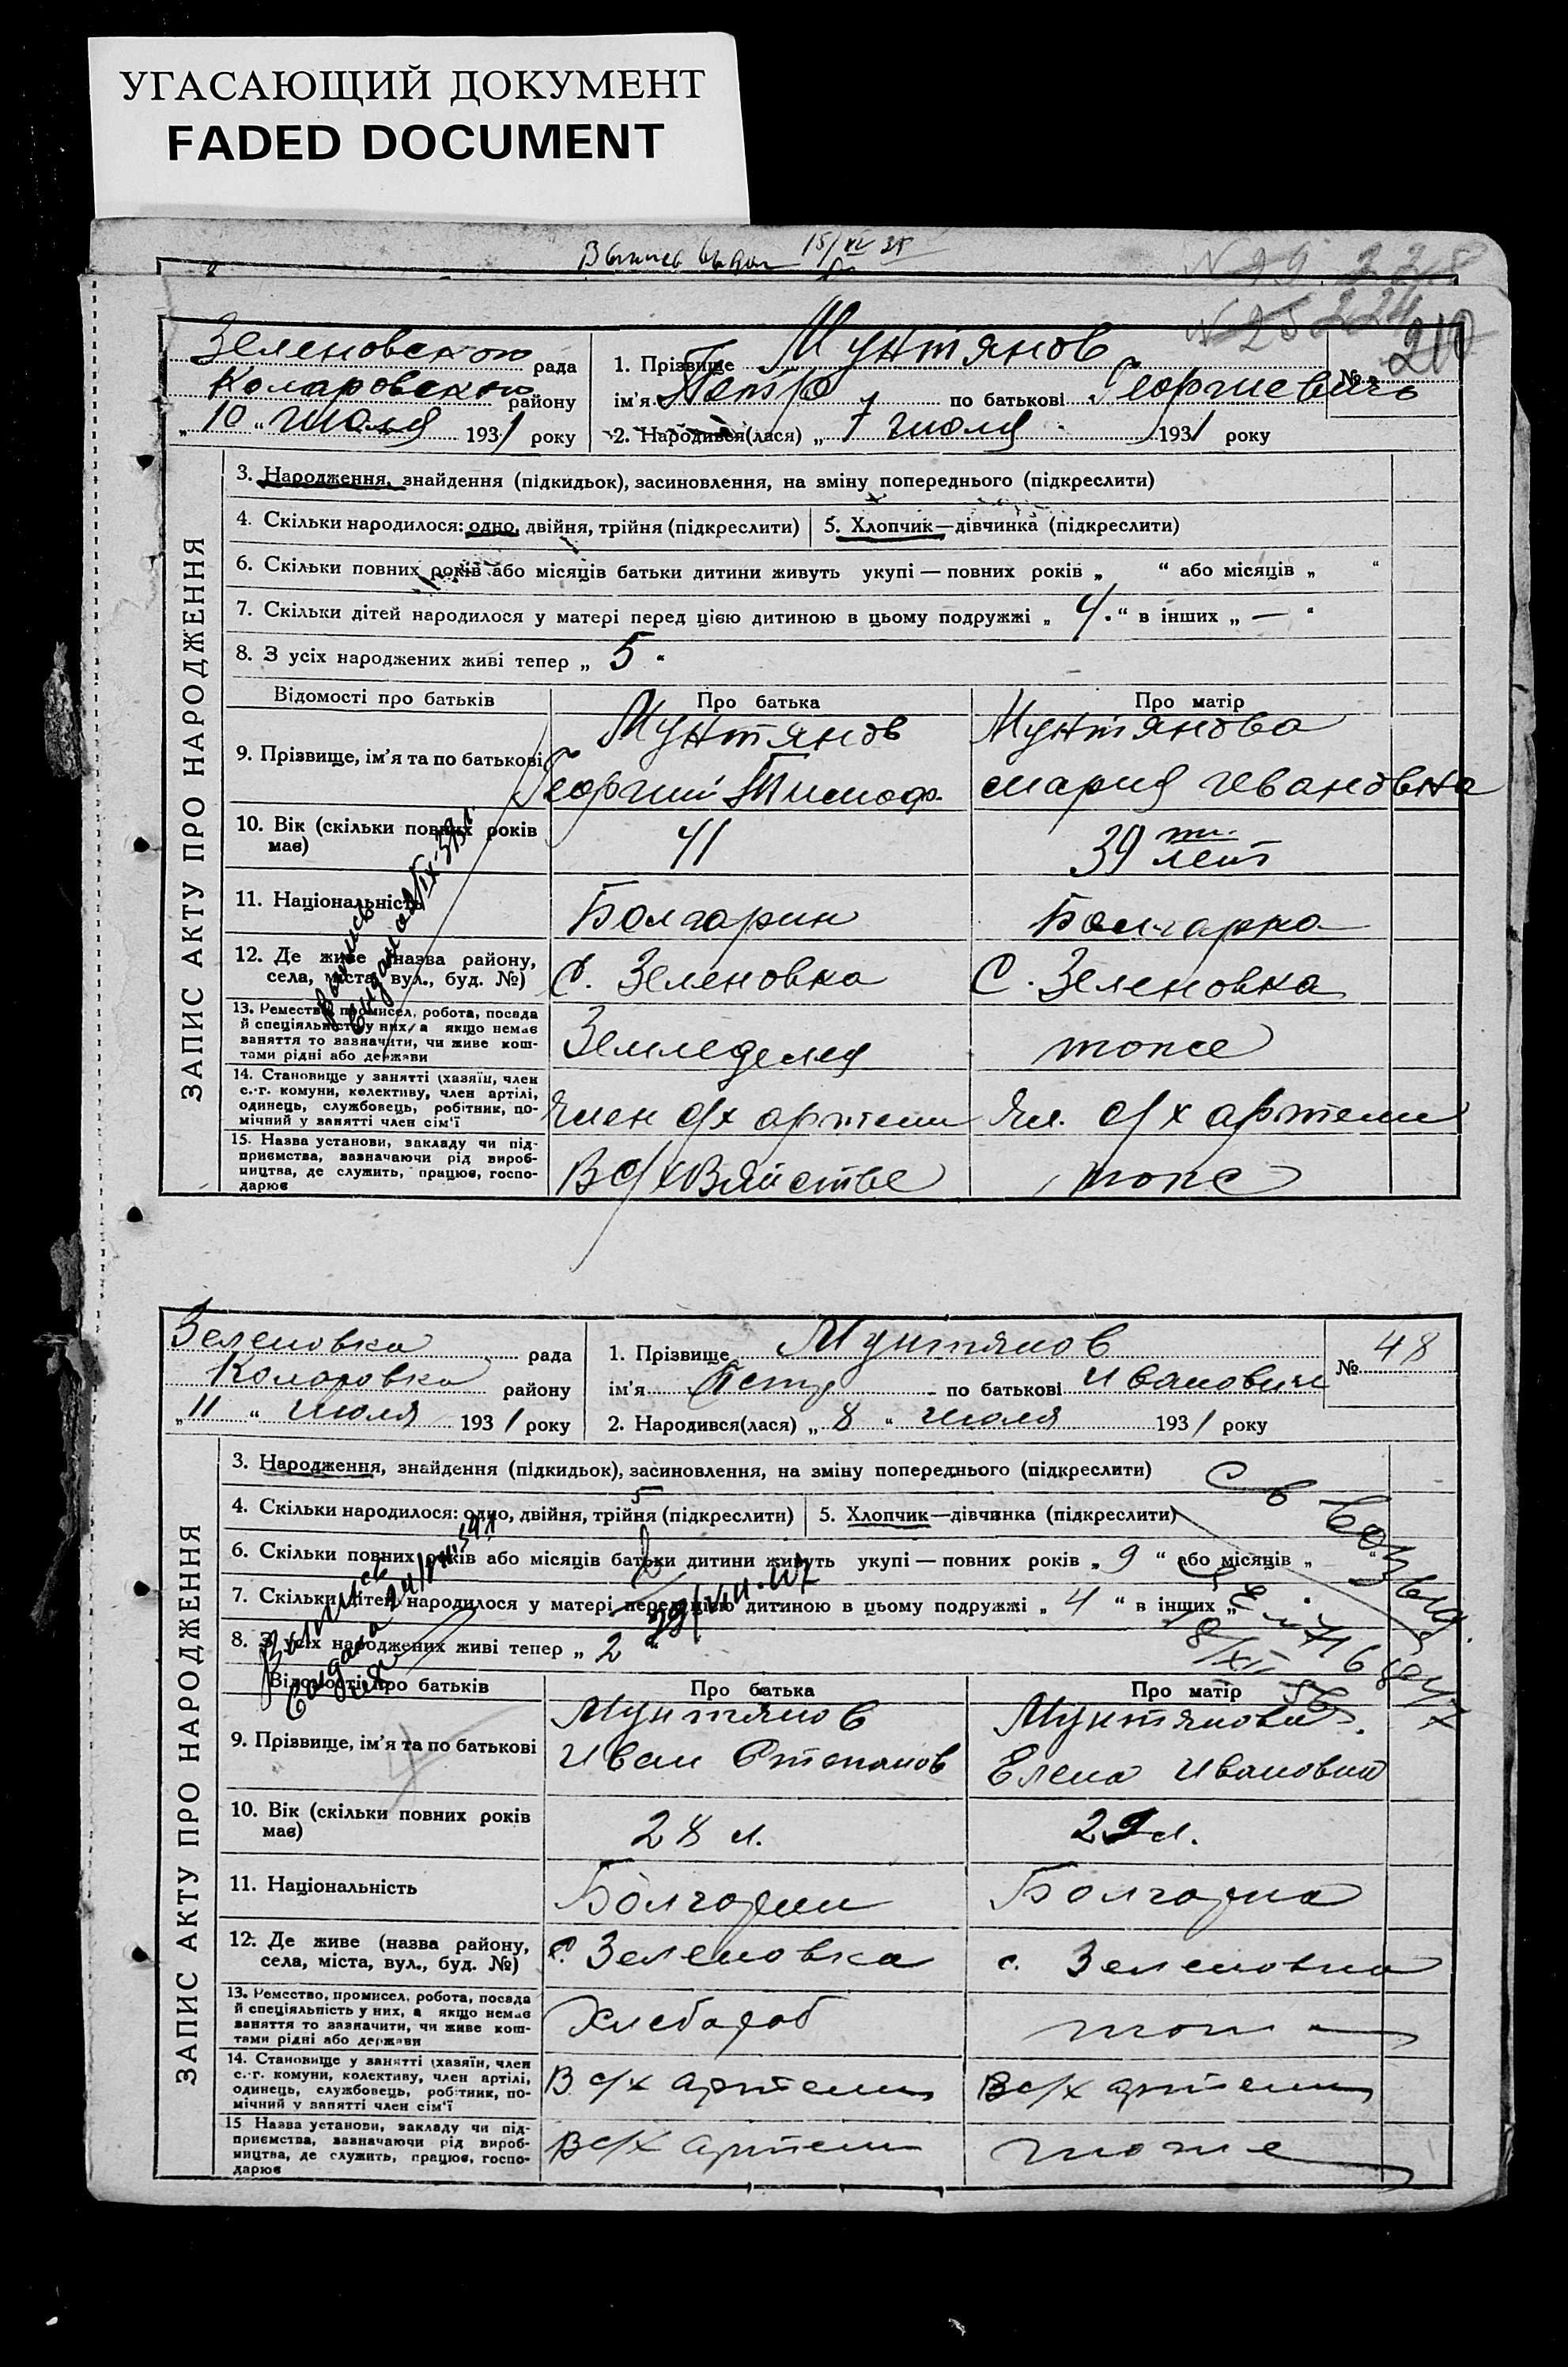 УГАСАЮЩИЙ ДОКУМЕНТ
FADED DOCUMENT
15/XI 35
№ 29 228
№ 25 224
210
Зеленовского рада
Коларовского району
„10“ июля 1931 року
1. Прізвище Мунтянов
ім'я Петр по батькові Георгиевичь
2. Народився(лася) „7 июля 1931 року
№
ЗАПИС АКТУ ПРО НАРОДЖЕННЯ
3. Народження, знайдення (підкидьок), засиновлення, на зміну попереднього (підкреслити)
4. Скільки народилося: одно, двійня, трійня (підкреслити) 5. Хлопчик—дівчинка (підкреслити)
6. Скільки повних років або місяців батьки дитини живуть укупі — повних років „ “ або місяців „ “
7. Скільки дітей народилося у матері перед цією дитиною в цьому подружжі „ 4. “ в інших „ — “
8. З усіх народжених живі тепер „ 5 “
Відомості про батьків Про батька Про матір
9. Прізвище, ім'я та по батькові Мунтянов Мунтянова
Георгий Тимоф. Мария Ивановна
10. Вік (скільки повних років має) 41 39 ти лет
11. Національність Болгарин Болгарка
12. Де живе (назва району, села, міста, вул., буд. №) С. Зеленовка С. Зеленовка
13. Ремество, промисел, робота, посада
й спеціяльність у них, а якщо немає
заняття то зазначити, чи живе кош-
тами рідні або держави
Земледелия тоже
14. Становище у занятті (хазяїн, член
с.-г. комуни, колективу, член артілі,
одинець, службовець, робітник, по-
мічний у занятті член сім'ї
Член с/х артели Чл. с/х артели
15. Назва установи, закладу чи під-
приємства, зазначаючи рід вироб-
ництва, де служить, працює, госпо-
дарює
тоже
Выпись
выдана
Зеленовка рада
Коларовка району
„11“ июля 1931 року
1. Прізвище Мунтянов
ім'я Петр по батькові Иванович
2. Народився(лася) „8“ июля 1931 року
№ 48
ЗАПИС АКТУ ПРО НАРОДЖЕННЯ
3. Народження, знайдення (підкидьок), засиновлення, на зміну попереднього (підкреслити)
4. Скільки народилося: одно, двійня, трійня (підкреслити) 5. Хлопчик—дівчинка (підкреслити)
6. Скільки повних років або місяців батьки дитини живуть укупі — повних років „ 9 “ або місяців „ “
7. Скільки дітей народилося у матері перед цією дитиною в цьому подружжі „ 4 “ в інших „
8. З усіх народжених живі тепер „ 2 “
Відомості про батьків Про батька Про матір
9. Прізвище, ім'я та по батькові Мунтянов Мунтянова
Иван Степанов Елена Ивановна
10. Вік (скільки повних років має) 28 л. 29 л.
11. Національність Болгарин Болгарка
12. Де живе (назва району, села, міста, вул., буд. №) с. Зеленовка с. Зеленовка
13. Ремество, промисел, робота, посада
й спеціяльність у них, а якщо немає
заняття то зазначити, чи живе кош-
тами рідні або держави
Хлебароб тоже
14. Становище у занятті (хазяїн, член
с.-г. комуни, колективу, член артілі,
одинець, службовець, робітник, по-
мічний у занятті член сім'ї
В с/х артели В с/х артели
15. Назва установи, закладу чи під-
приємства, зазначаючи рід вироб-
ництва, де служить, працює, госпо-
дарює
В с/х артели тоже